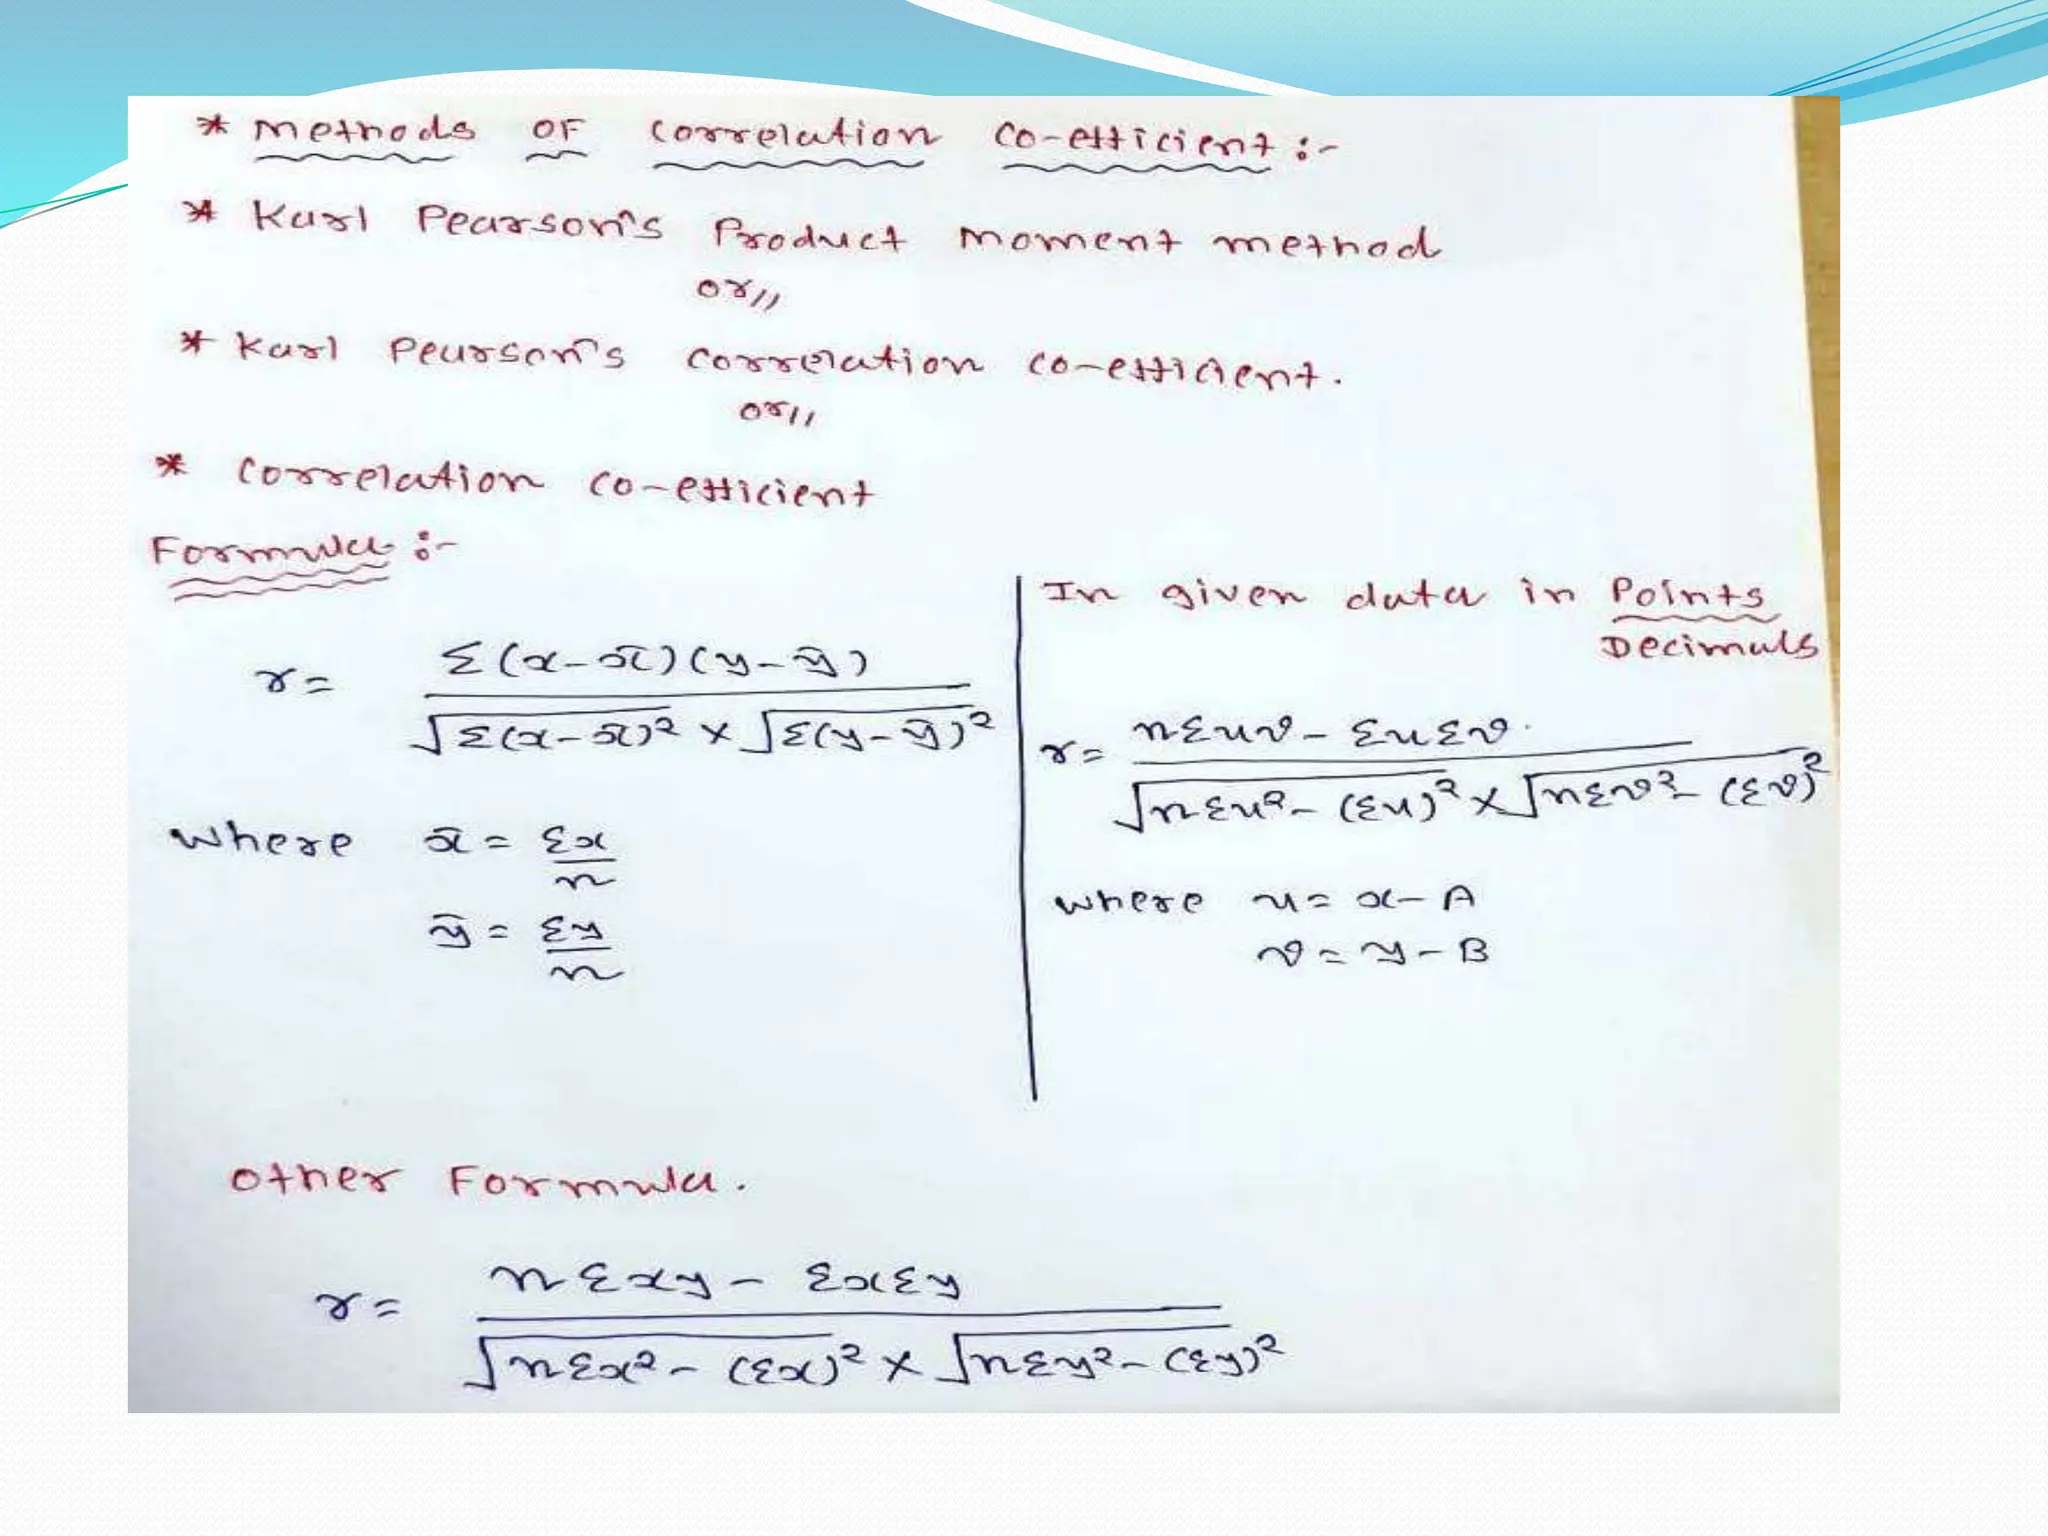 * Methods OF Correlation Co-efficient :-
* Karl Pearson's Product Moment method
or//
* Karl Pearson's Correlation Co-efficient.
or//
* Correlation Co-efficient
Formula :-
r = Σ(x-x̄)(y-ȳ) / √Σ(x-x̄)² × √Σ(y-ȳ)²
Where x̄ = Σx / n
ȳ = Σy / n
In given data in Points
Decimals
r = nΣuv - ΣuΣv / √nΣu² - (Σu)² × √nΣv² - (Σv)²
Where u = x - A
v = y - B
Other Formula.
r = nΣxy - ΣxΣy / √nΣx² - (Σx)² × √nΣy² - (Σy)²